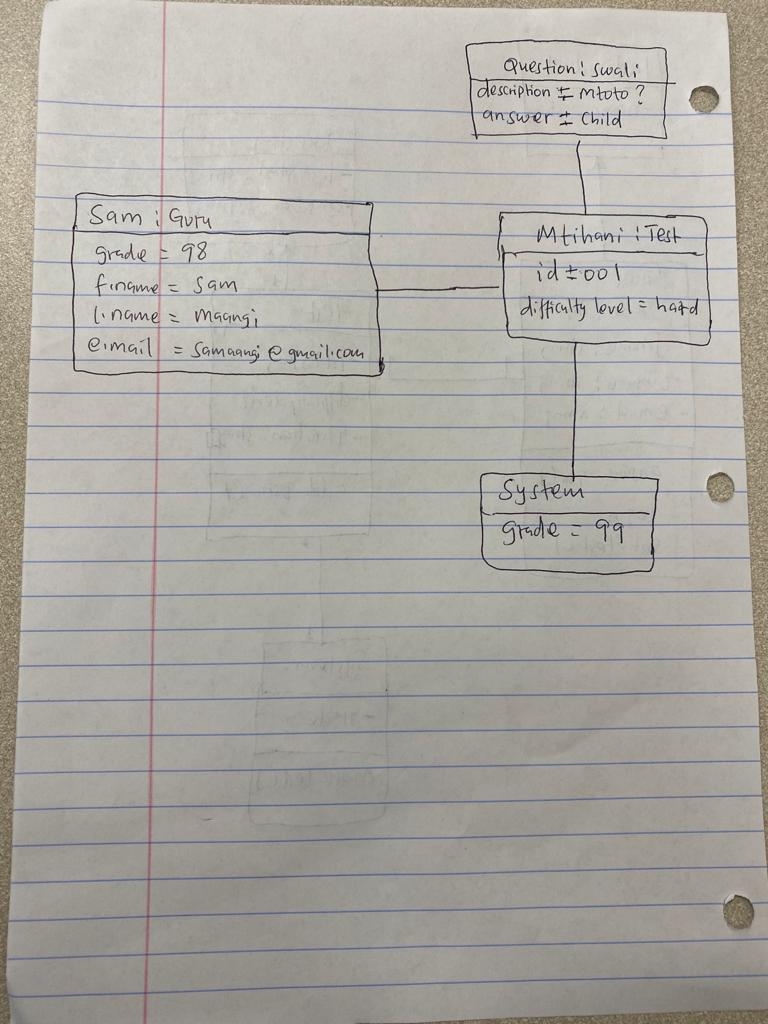 Question: swali
description = Mtoto?
answer = Child
Sam: Guru
grade = 98
f.name = Sam
l.name = maangi
e.mail = Samaangi@gmail.com
Mtihani: Test
id = 001
difficulty level = hard
System
grade = 99